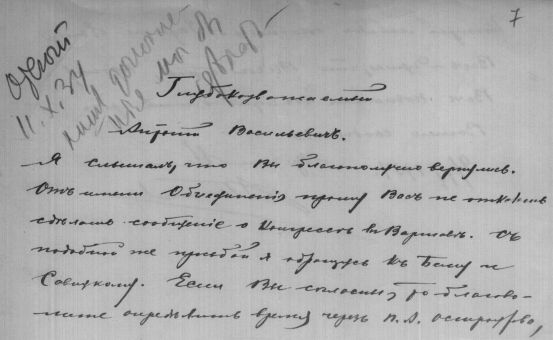 7
11.X.34
Глубокоуважаемый
Антоній Васильевичъ.
Я слышалъ, что Вы благополучно вернулись.
Отъ имени Объединенія прошу Васъ не отказать
сдѣлать сообщеніе о Конгрессѣ въ Варшавѣ. Съ
подобной же просьбой я обращусь къ Бему и
Савицкому. Если Вы согласны, то благово-
лите опредѣлить время черезъ П. А. Остроухова,